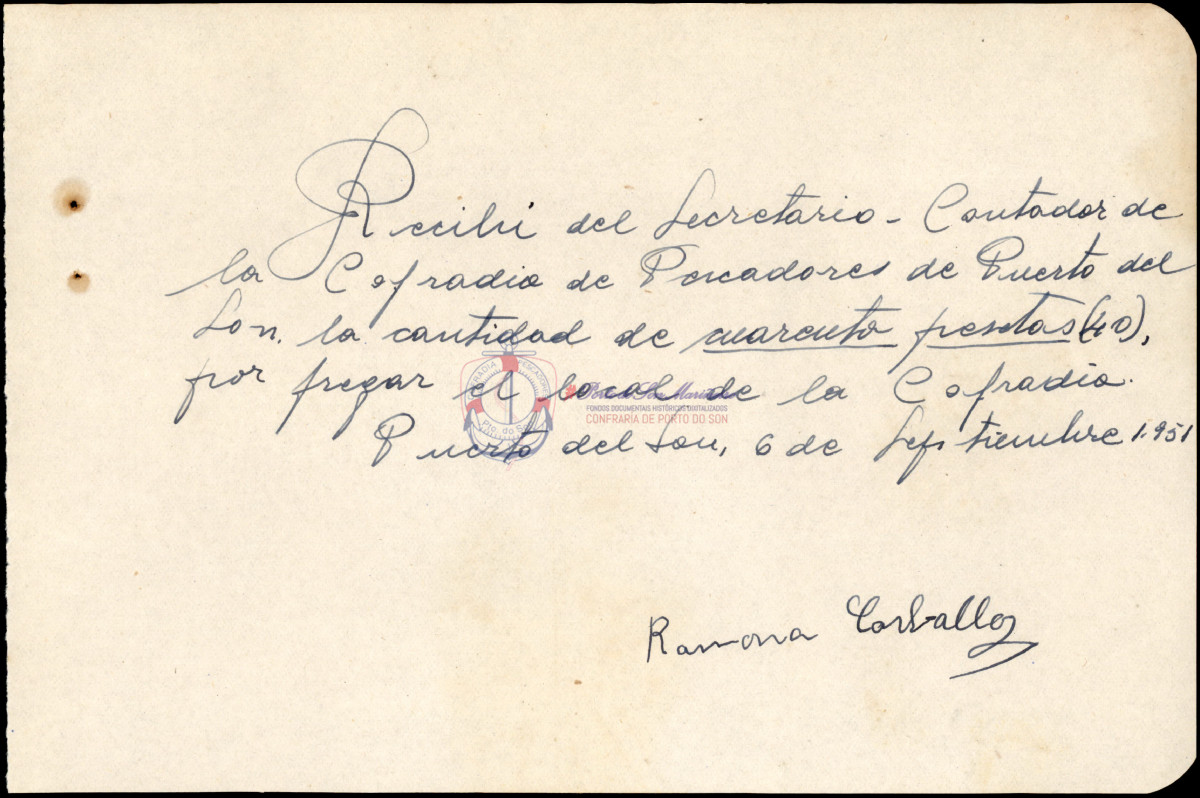 Recibí del Secretario-Contador de
la Cofradia de Pescadores de Puerto del
Son, la cantidad de cuarenta pesetas (40),
por fregar el local de la Cofradia.
Puerto del Son, 6 de Septiembre 1.951
Ramona Carballo
PESCADORES
Pto. do Son
FONDOS DOCUMENTAIS HISTÓRICOS DIXITALIZADOS
CONFRARÍA DE PORTO DO SON